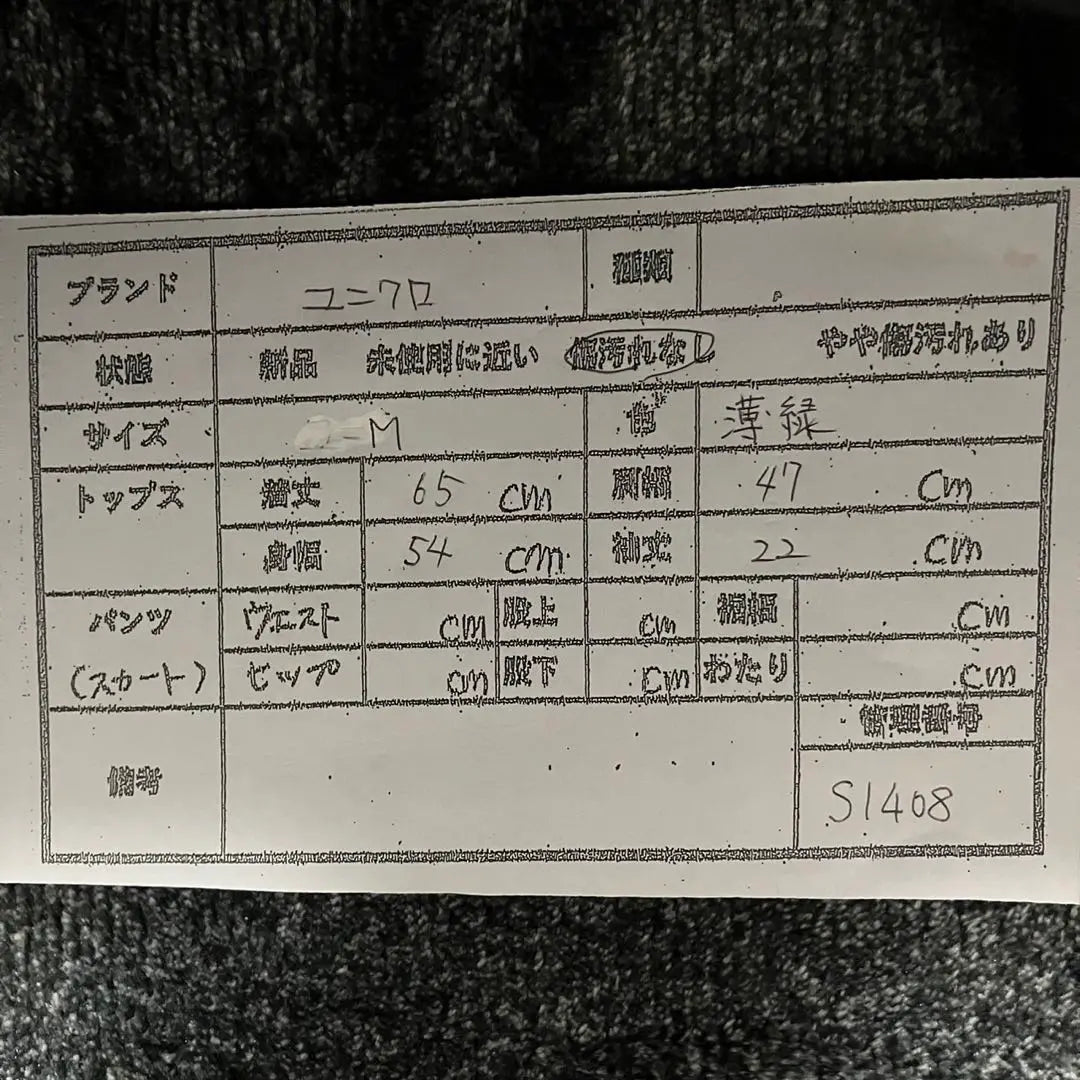 ブランド ユニクロ 種類
状態 新品 未使用に近い 傷汚れなし やや傷汚れあり
サイズ M 色 薄緑
トップス 着丈 65 cm 肩幅 47 cm
身幅 54 cm 袖丈 22 cm
パンツ ウエスト cm 股上 cm 裾幅 cm
(スカート) ヒップ cm 股下 cm わたり cm
管理番号
備考 S1408